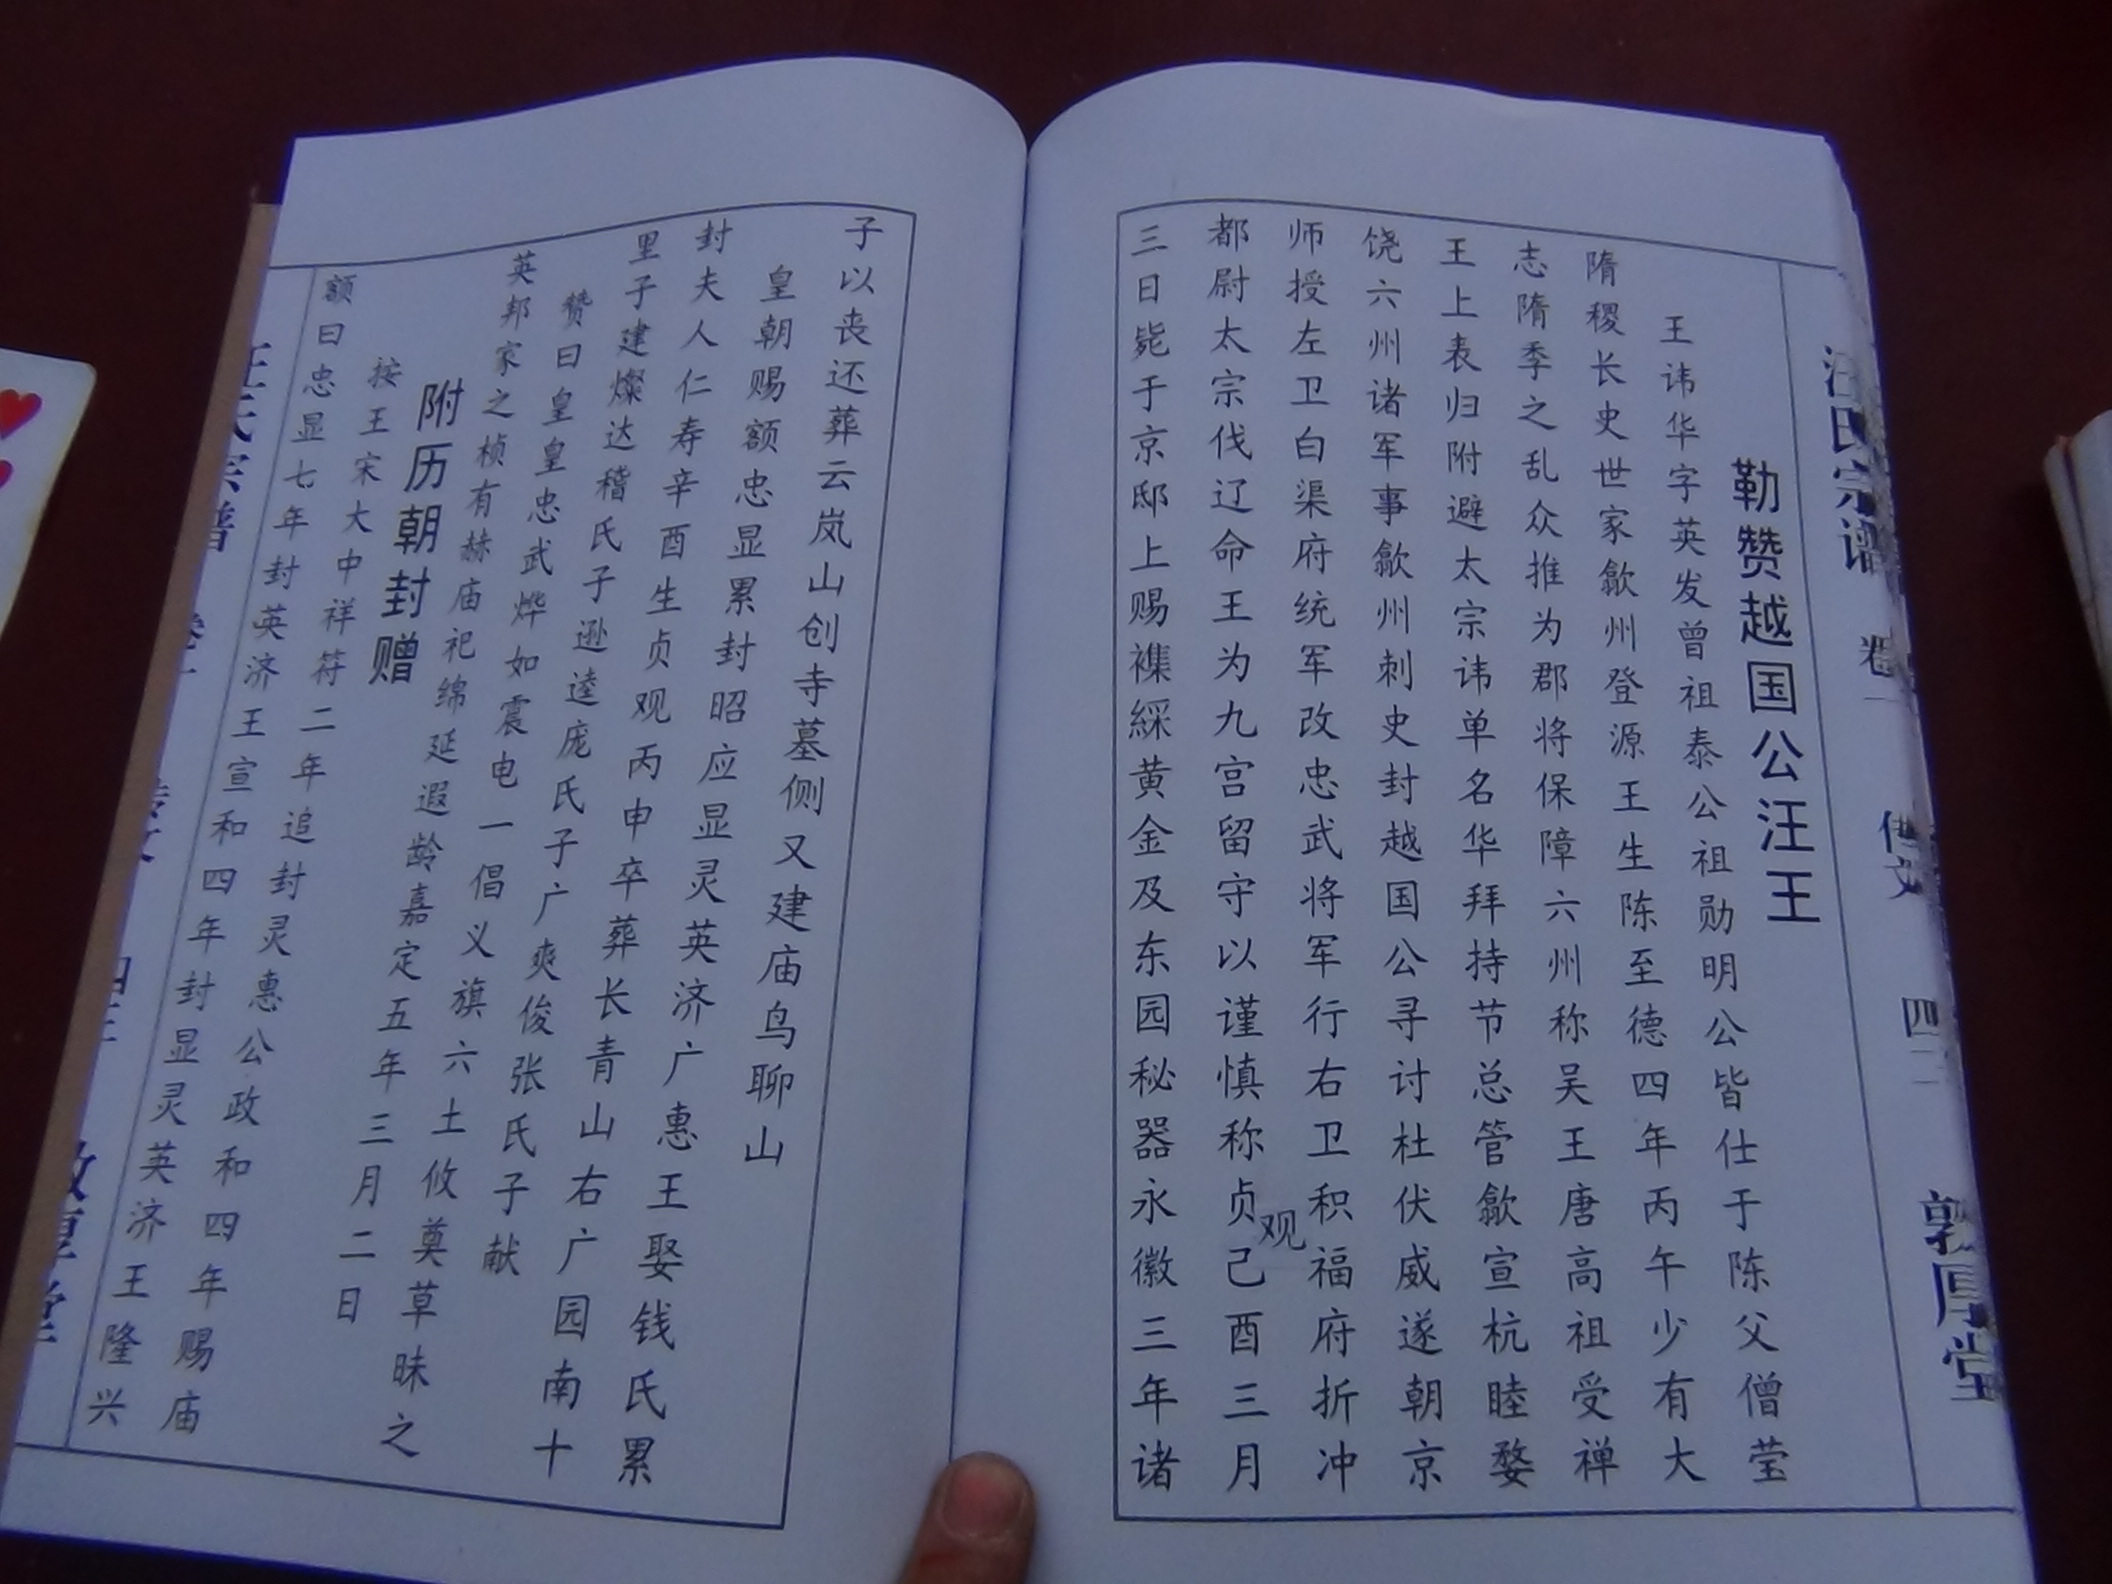 汪氏宗谱 卷一 传文 四二 敦厚堂
勒赞越国公汪王
王讳华字英发曾祖泰公祖勋明公皆仕于陈父僧莹
隋稷长史世家歙州登源王生陈至德四年丙午少有大
志隋季之乱众推为郡将保障六州称吴王唐高祖受禅
王上表归附避太宗讳单名华拜持节总管歙宣杭睦婺
饶六州诸军事歙州刺史封越国公寻讨杜伏威遂朝京
师授左卫白渠府统军改忠武将军行右卫积福府折冲
都尉太宗伐辽命王为九宫留守以谨慎称贞观己酉三月
三日毙于京邸上赐襍綵黄金及东园秘器永徽三年诸
子以丧还葬云岚山创寺墓侧又建庙鸟聊山
皇朝赐额忠显累封昭应显灵英济广惠王娶钱氏累
封夫人仁寿辛酉生贞观丙申卒葬长青山右广园南十
里子建燦达稽氏子逊逵庞氏子广爽俊张氏子献
赞曰皇皇忠武烨如震电一倡义旗六土攸奠草昧之
英邦家之桢有赫庙祀绵延遐龄嘉定五年三月二日
附历朝封赠
按王宋大中祥符二年追封灵惠公政和四年赐庙
额曰忠显七年封英济王宣和四年封显灵英济王隆兴
汪氏宗谱 卷一 传文 敦厚堂